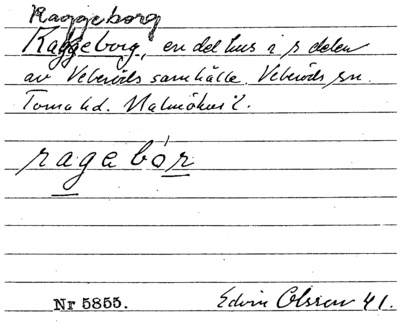 Raggeborg
Raggeborg, en del hus i s delen
av Veberöds samhälle. Veberöds sn.
Torna hd. Malmöhus l.
ragebór
Nr 5855. Edvin Olsson 41.